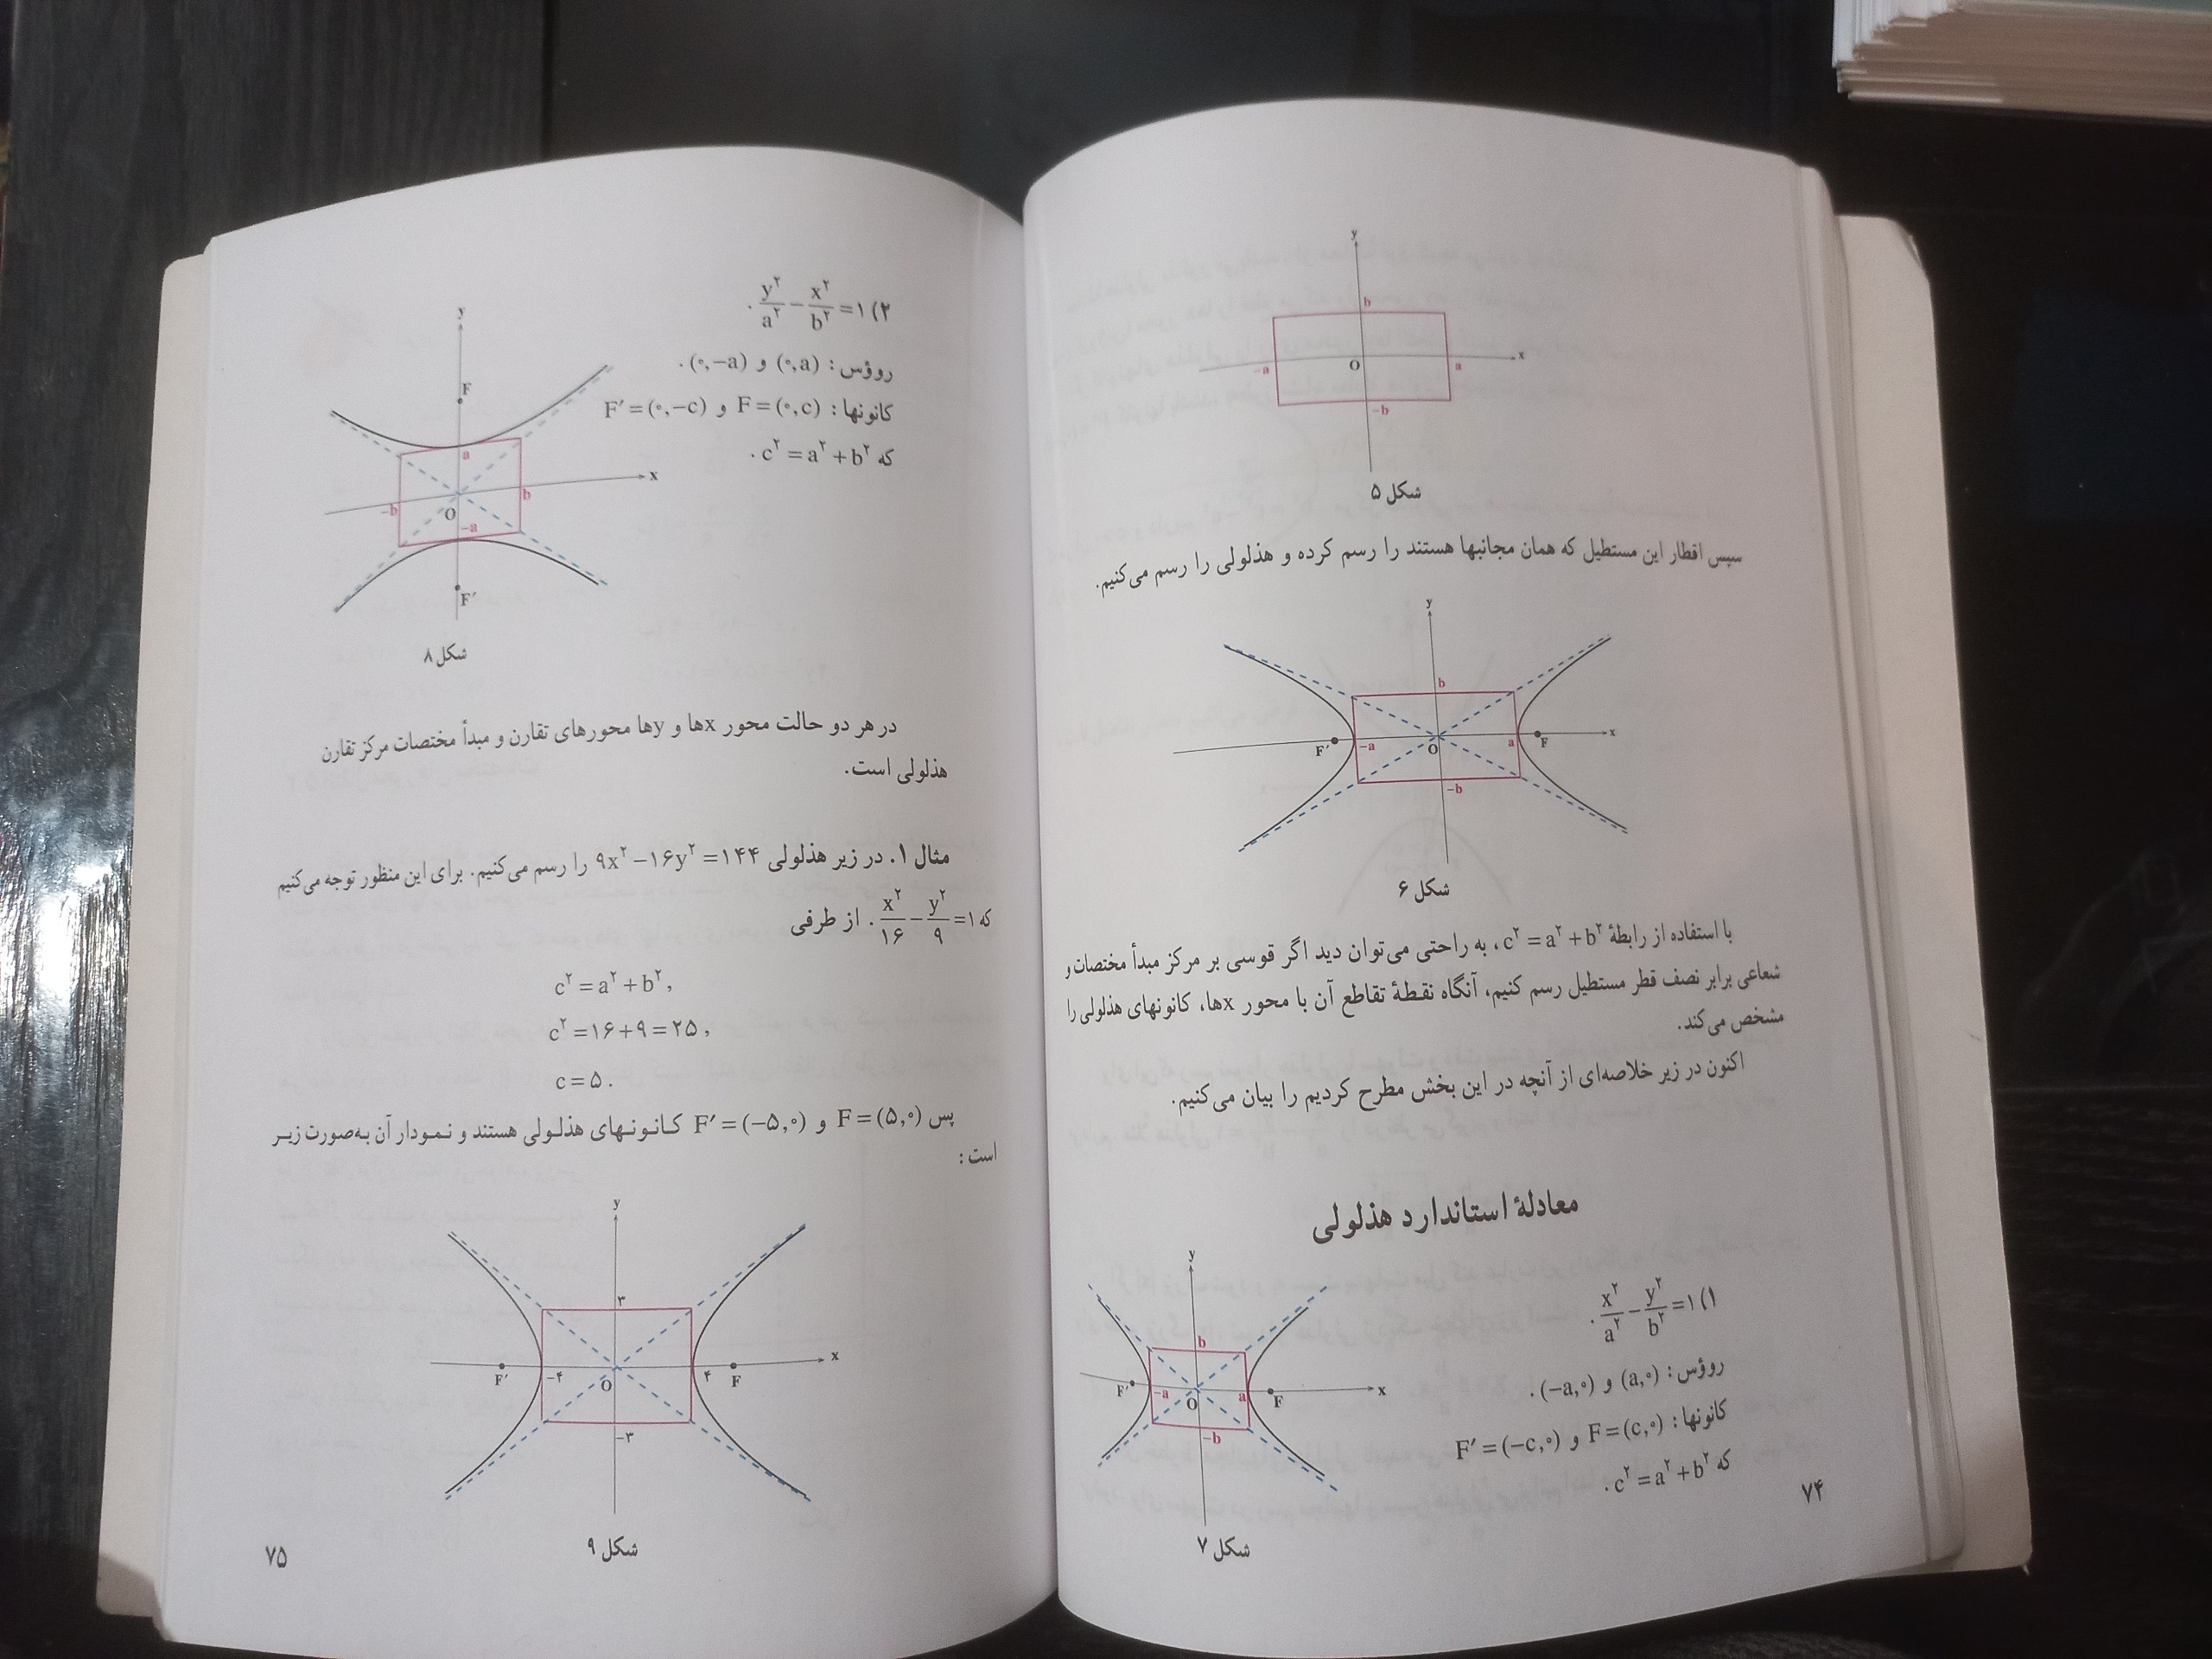 y
b
x
-a
O
a
-b
شکل ۵
سپس اقطار این مستطیل که همان مجانبها هستند را رسم کرده و هذلولی را رسم می‌کنیم.
y
b
x
F′
-a
O
a
F
-b
شکل ۶
با استفاده از رابطهٔ c² = a² + b²، به راحتی می‌توان دید اگر قوسی بر مرکز مبدأ مختصات و
شعاعی برابر نصف قطر مستطیل رسم کنیم، آنگاه نقطهٔ تقاطع آن با محور xها، کانونهای هذلولی را
مشخص می‌کند.
اکنون در زیر خلاصه‌ای از آنچه در این بخش مطرح کردیم را بیان می‌کنیم.
معادلهٔ استاندارد هذلولی
۱) x²/a² − y²/b² = ۱.
رؤوس: (a,۰) و (−a,۰).
کانونها: F=(c,۰) و F′=(−c,۰)
که c² = a² + b².
y
b
x
F′
-a
O
a
F
-b
شکل ۷
۷۴
۲) y²/a² − x²/b² = ۱.
روؤس: (۰,a) و (۰,−a).
کانونها: F=(۰,c) و F′=(۰,−c)
که c² = a² + b².
y
F
a
x
b
-b
O
-a
F′
شکل ۸
در هر دو حالت محور xها و yها محورهای تقارن و مبدأ مختصات مرکز تقارن
هذلولی است.
مثال ۱. در زیر هذلولی ۹x² − ۱۶y² = ۱۴۴ را رسم می‌کنیم. برای این منظور توجه می‌کنیم
که x²/۱۶ − y²/۹ = ۱. از طرفی
c² = a² + b²,
c² = ۱۶ + ۹ = ۲۵,
c = ۵.
پس F = (۵,۰) و F′ = (−۵,۰) کانونهای هذلولی هستند و نمودار آن به‌صورت زیر
است:
y
۳
x
F′
-۴
O
۴
F
-۳
شکل ۹
۷۵